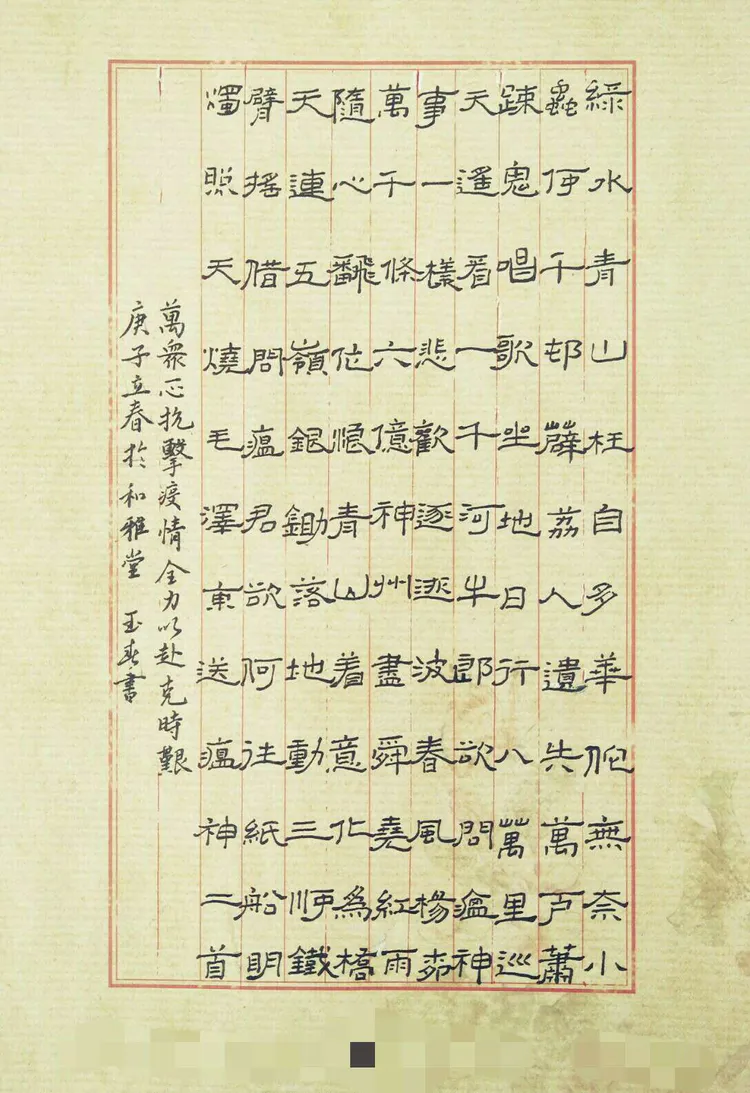 綠水青山枉自多華佗無奈小
蟲何千邨薜荔人遺失萬戶蕭
疎鬼唱歌坐地日行八萬里巡
天遙看一千河牛郎欲問瘟神
事一樣悲歡逐逝波春風楊柳
萬千條六億神州盡舜堯紅雨
隨心飜位浪青山着意化為橋
天連五嶺銀鋤落地動三河鐵
臂搖借問瘟君欲何往紙船明
燭照天燒毛澤東送瘟神二首
萬衆一心抗擊疫情全力以赴克時艱
庚子立春於和雅堂 玉春書